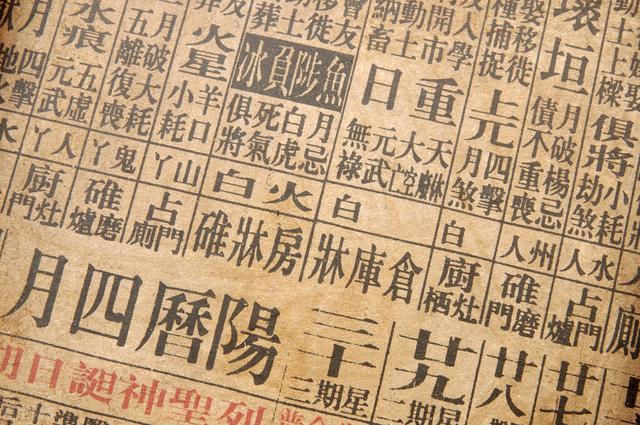 壞垣
娶移徙
種捕捉
人學
開市
動土
納畜
友
移徙
葬
俱將
小耗
劫煞
月破楊忌
債不重喪
上元
四擊
月煞
重日
元武
無祿
魚陟負冰
月忌
白虎
死氣
俱將
火星
羊口
小耗
月破大耗
五離復喪
水痕
五虛
元武
四擊
月
水人
州人
白
白
火白
山丫
鬼丫
人丫
水
占門爐
碓磨門
廚灶栖
倉庫牀
房牀碓
占門廁
碓磨爐
廚灶門
廁
廿七
廿八
廿九
星期二
三十
星期三
陽曆四月
列聖神誕日